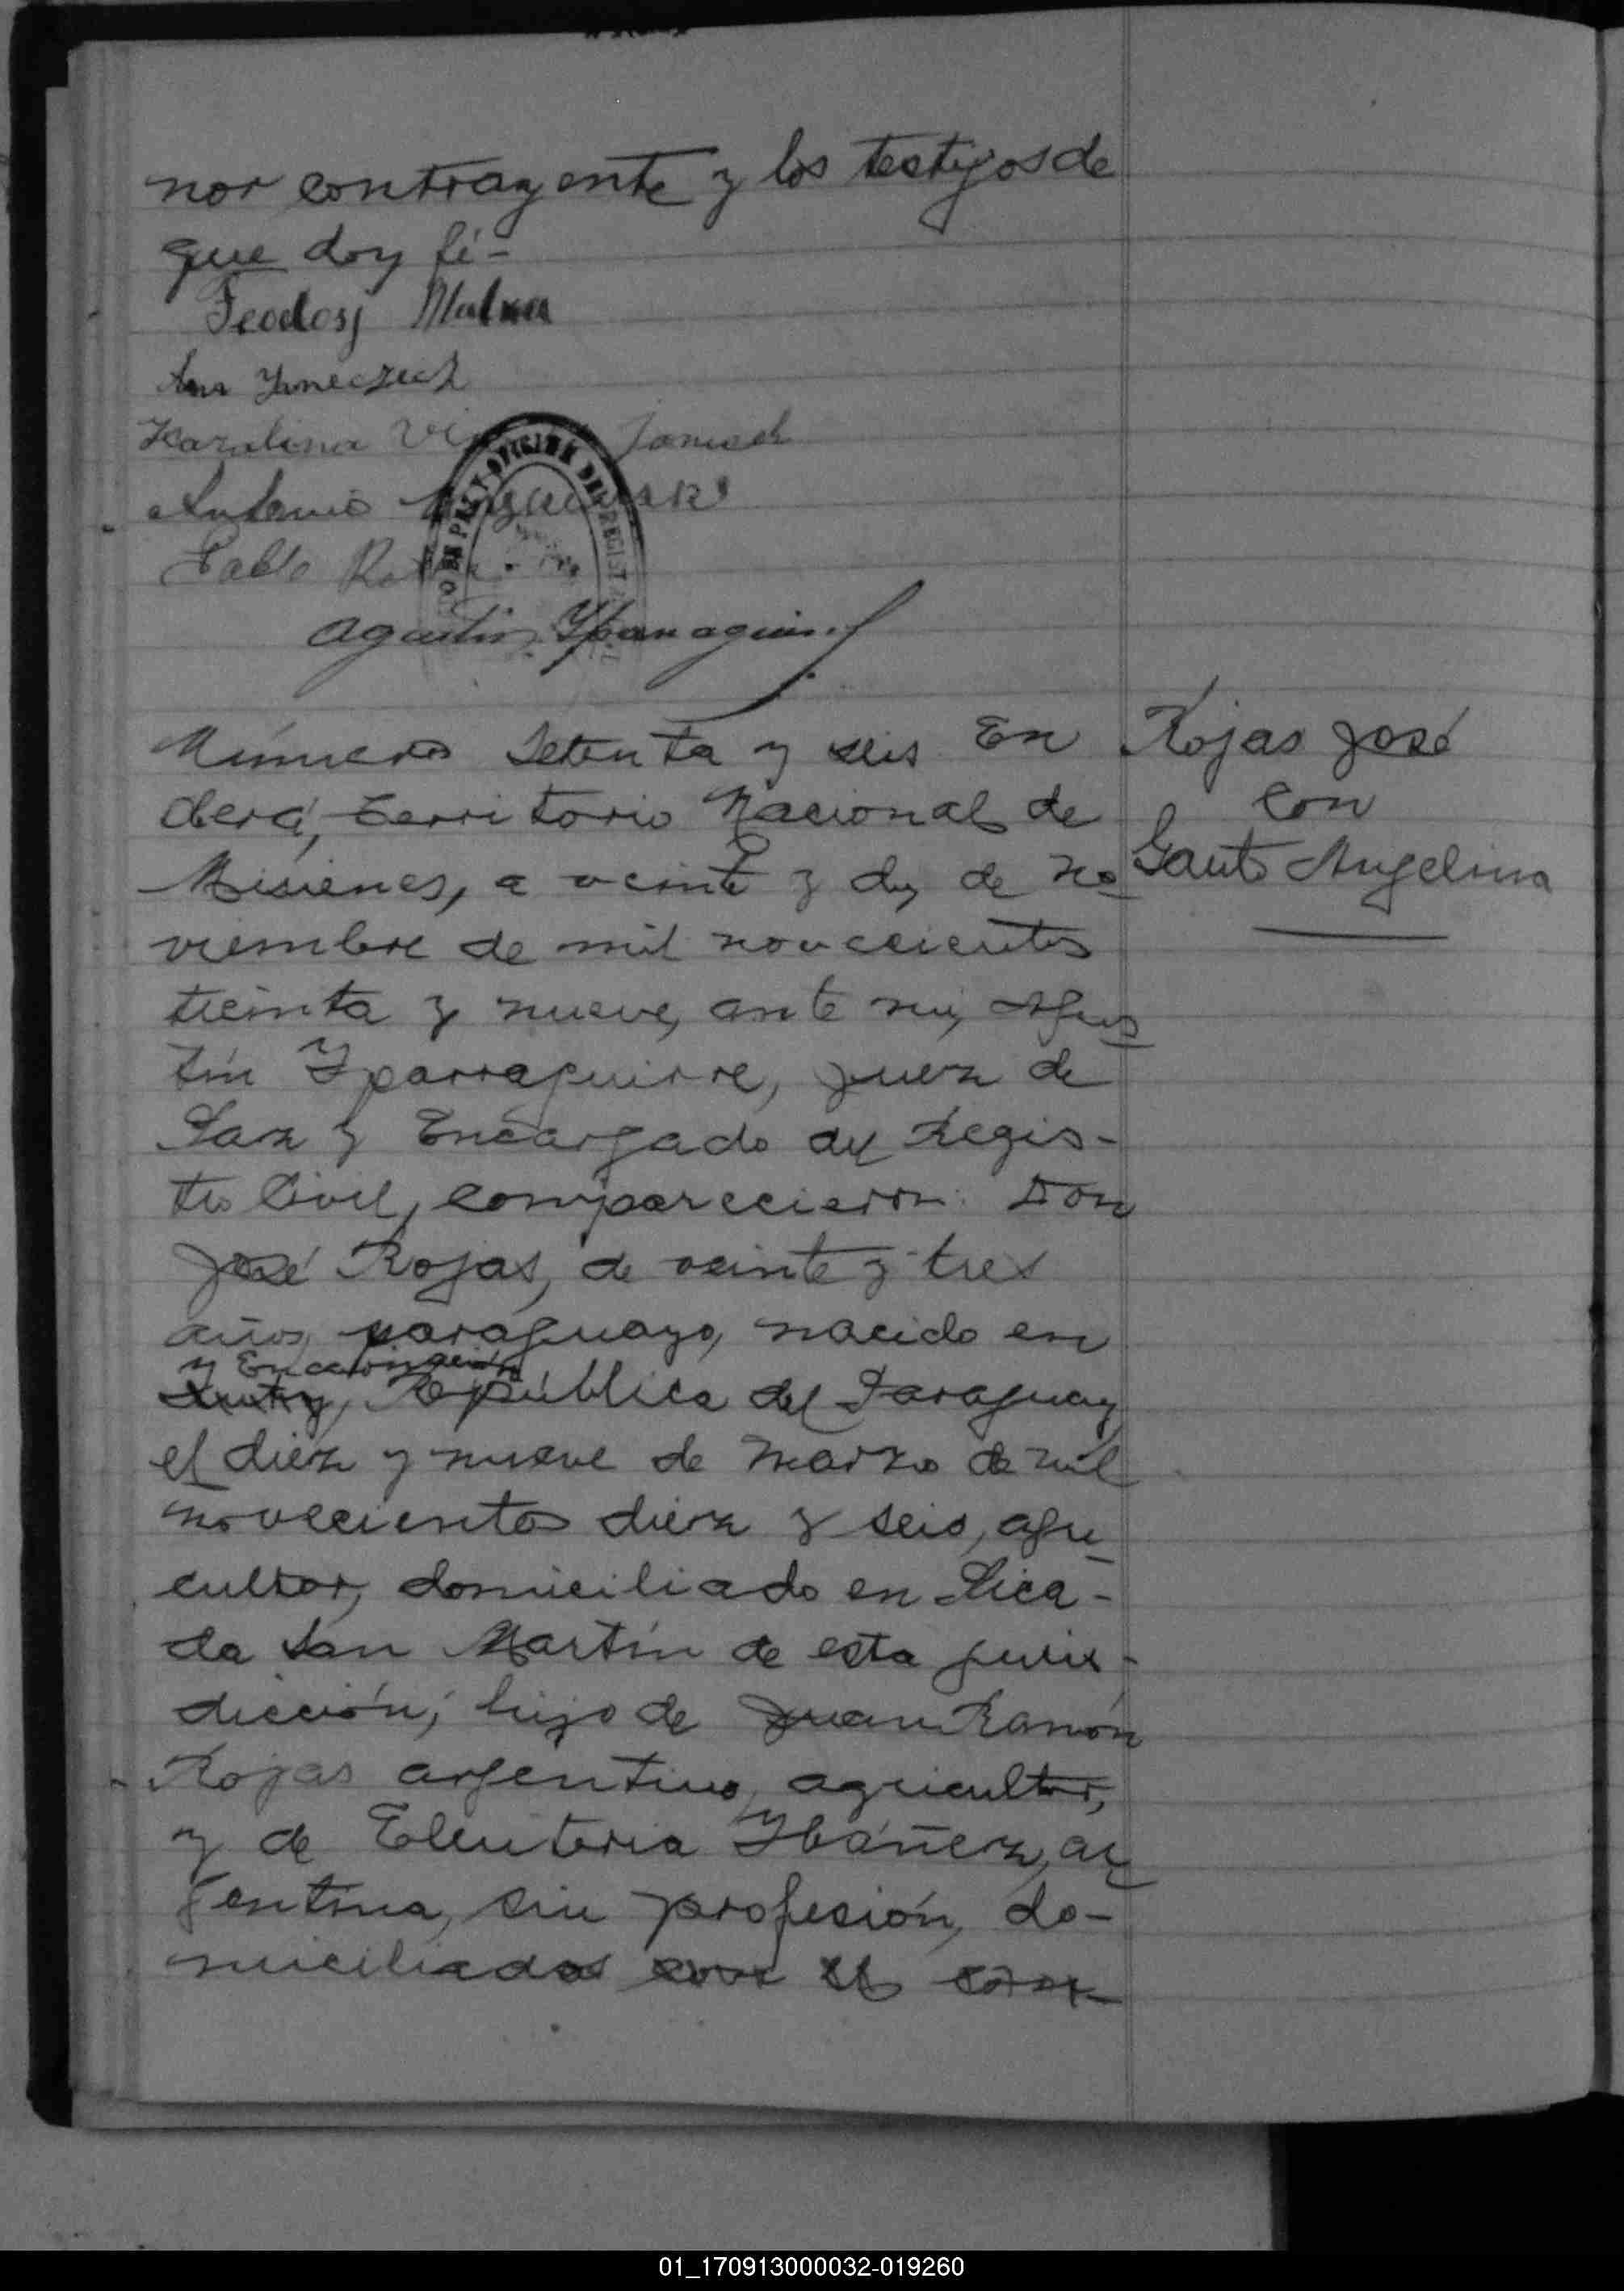 nor contrayente y los testigos de
que doy fé-
Teodosy
Ana Yaneczech
Karalina
Antonio
Pablo
Agustin Yparraguirre
OFICINA DEL REGIST
Número Setenta y seis En
Oberá, territorio Nacional de
Misiones, a veinte y dos de no
viembre de mil novecientos
treinta y nueve, ante mi, Agus
tín Yparraguirre, Juez de
Paz y Encargado del Regis-
tro Civil, comparecieron: Don
José Rojas, de veinte y tres
años, paraguayo, nacido en
y Encarnación
República del Paraguay
el diez y nueve de Marzo de mil
novecientos diez y seis, agri
cultor, domiciliado en Pica-
da San Martín de esta juris-
dicción; hijo de Juan Ramón
Rojas argentino, agricultor,
y de Eleuteria Ybáñez, ar
gentina, sin profesión, do-
miciliados con el con
Rojas José
con
Gauto Angelina
01_170913000032-019260